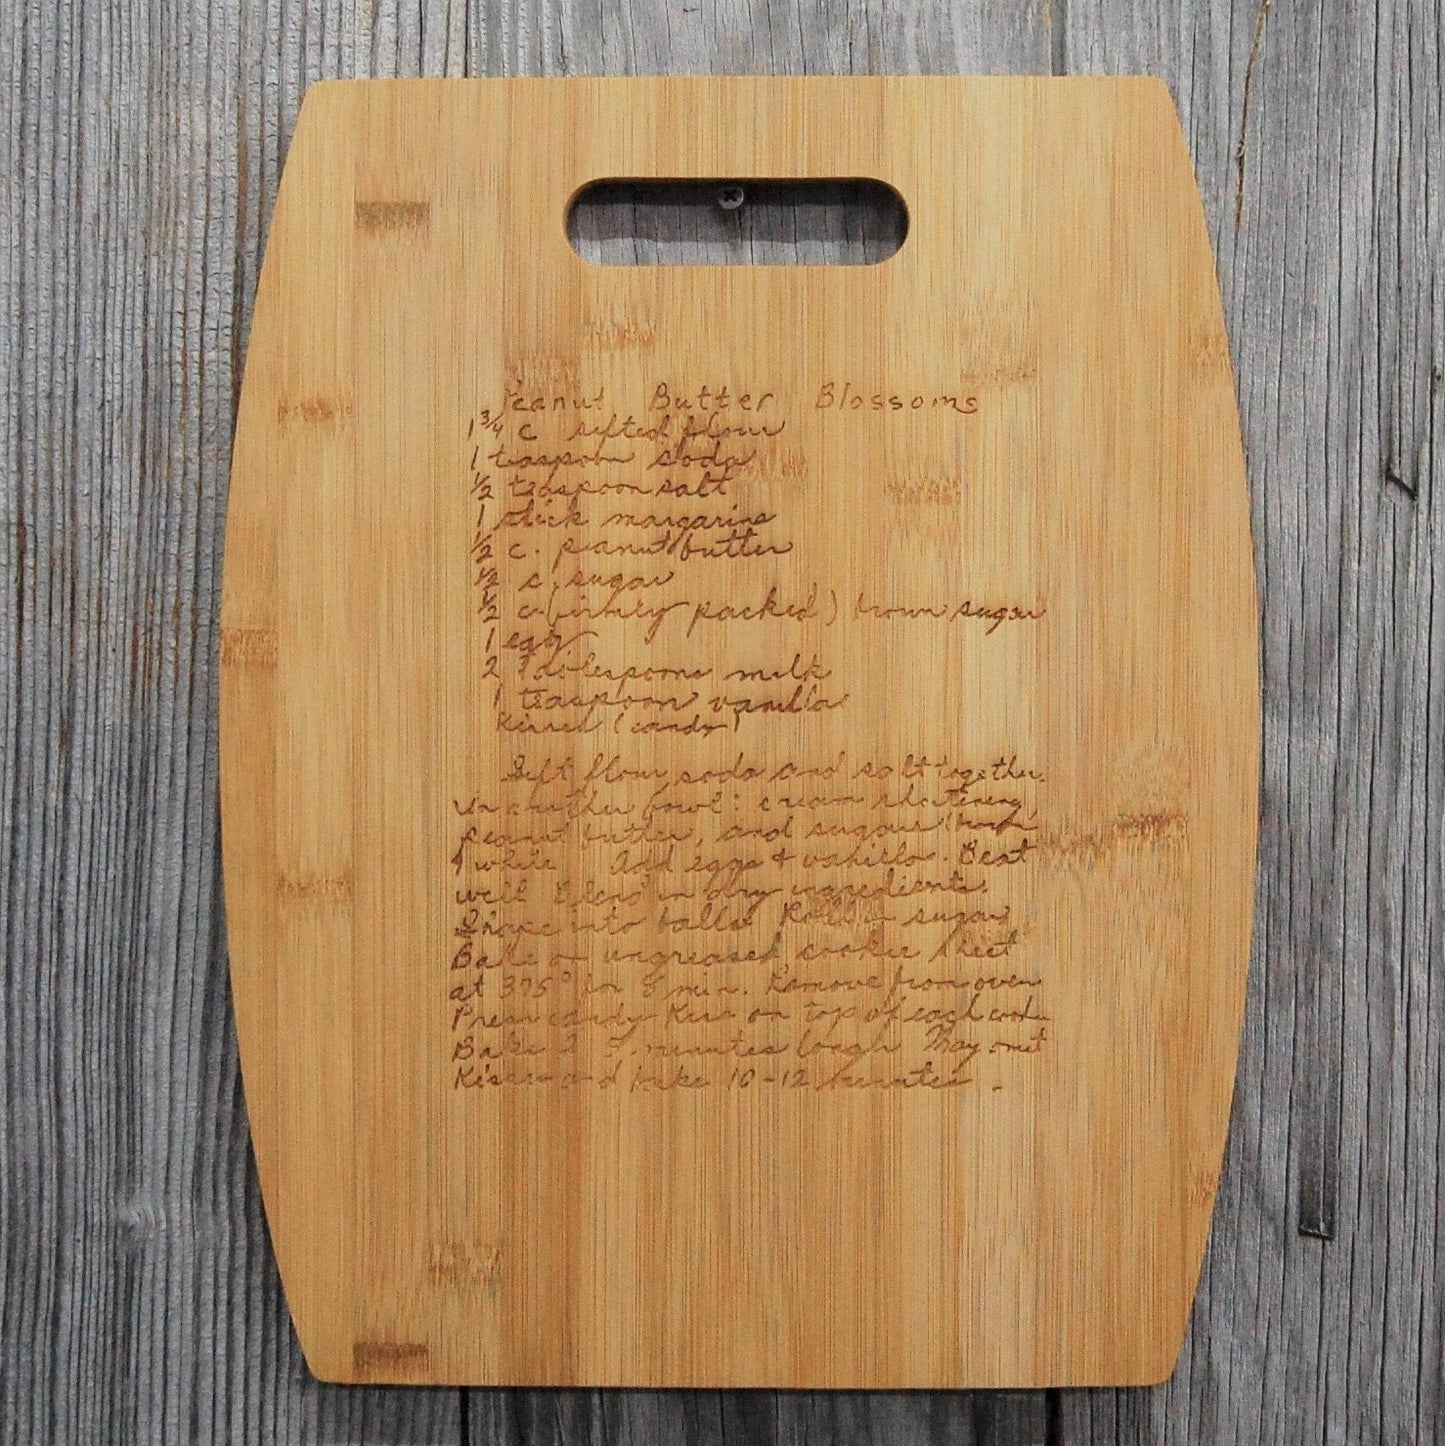 Peanut Butter Blossoms
1 3/4 c sifted flour
1 teaspoon soda
1/2 teaspoon salt
1 stick margarine
1/2 c. peanut butter
1/2 c. sugar
1/2 c. (firmly packed) brown sugar
1 egg
2 Tablespoons milk
1 teaspoon vanilla
Kisses (candy)
Sift flour, soda and salt together.
In another bowl: cream shortening,
peanut butter, and sugars (brown
& white Add eggs + vanilla. Beat
well Blend in dry ingredients.
Shape into balls Roll in sugar
Bake on ungreased cookie sheet
at 375° for 8 min. Remove from oven
Press candy Kiss on top of each cookie
Bake 2 minutes longer May omit
Kisses and bake 10-12 minutes.